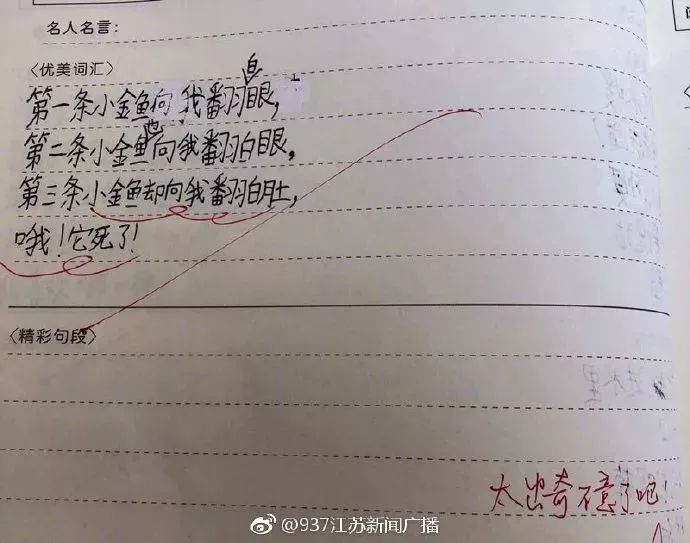 名人名言：
〈优美词汇〉
第一条小金鱼向我翻白眼，
第二条小金鱼也向我翻白眼，
第三条小金鱼却向我翻白肚，
哦！它死了！
〈精彩句段〉
太出奇不意了吧！
@937江苏新闻广播